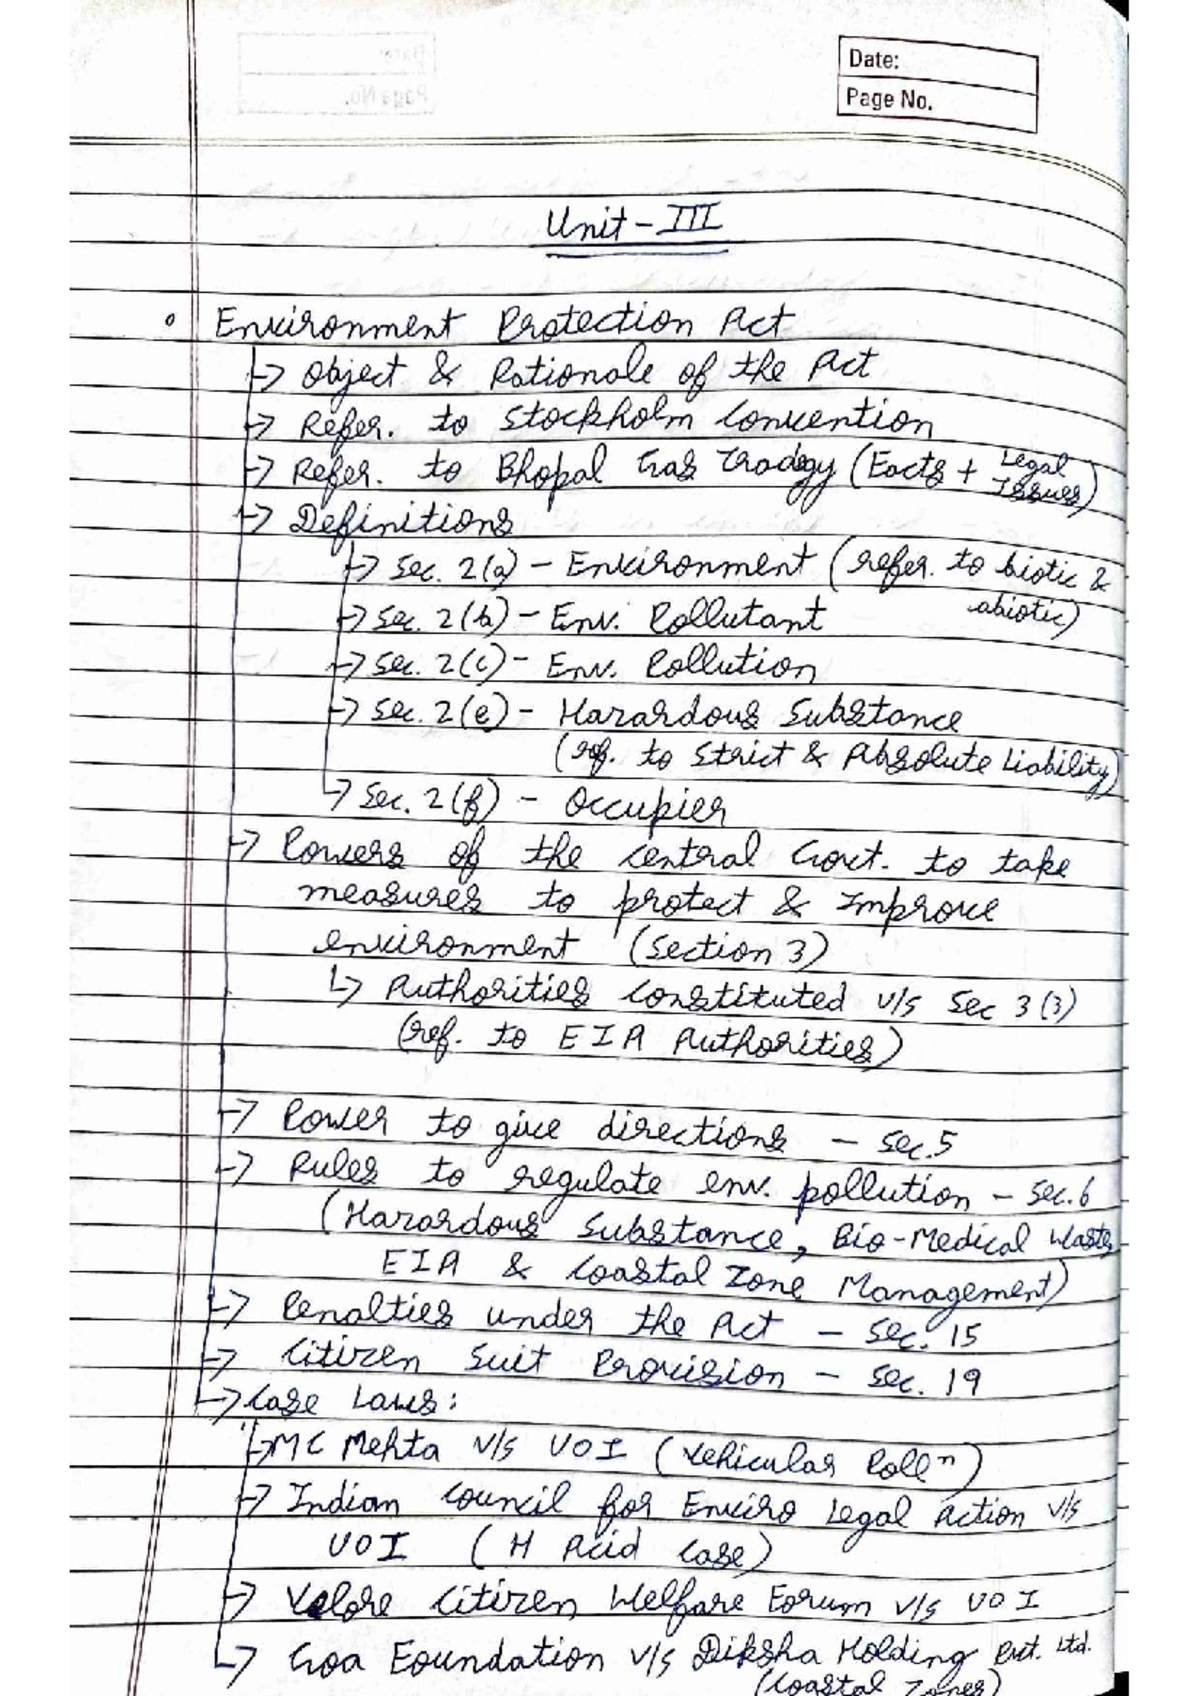 Date:
Page No.
Unit - III
Environment Protection Act
→ Object & Rationale of the Act
→ Refer. to Stockholm Convention
→ Refer. to Bhopal Gas Tradegy (Facts + Legal Issues)
→ Definitions
→ Sec. 2(a) - Environment (refer. to biotic &
abiotic)
→ Sec. 2(b) - Env. Pollutant
→ Sec. 2(c) - Env. Pollution
→ Sec. 2(e) - Hazardous Substance
(ref. to Strict & Absolute Liability)
→ Sec. 2(f) - Occupier
→ Powers of the Central Govt. to take
measures to protect & Improve
environment (Section 3)
↳ Authorities Constituted v/s Sec 3(3)
(ref. to EIA Authorities)
→ Power to give directions - Sec.5
→ Rules to regulate env. pollution - Sec.6
(Hazardous Substance, Bio-Medical Waste,
EIA & Coastal Zone Management)
→ Penalties under the Act - Sec. 15
→ Citizen Suit Provision - Sec. 19
→ Case Laws:
→ MC Mehta v/s UOI (Vehicular Pollⁿ)
→ Indian Council for Enviro Legal Action v/s
UOI (H Acid Case)
→ Velore Citizen Welfare Forum v/s UOI
→ Goa Foundation v/s Diksha Holding Pvt. Ltd.
(Coastal Zones)